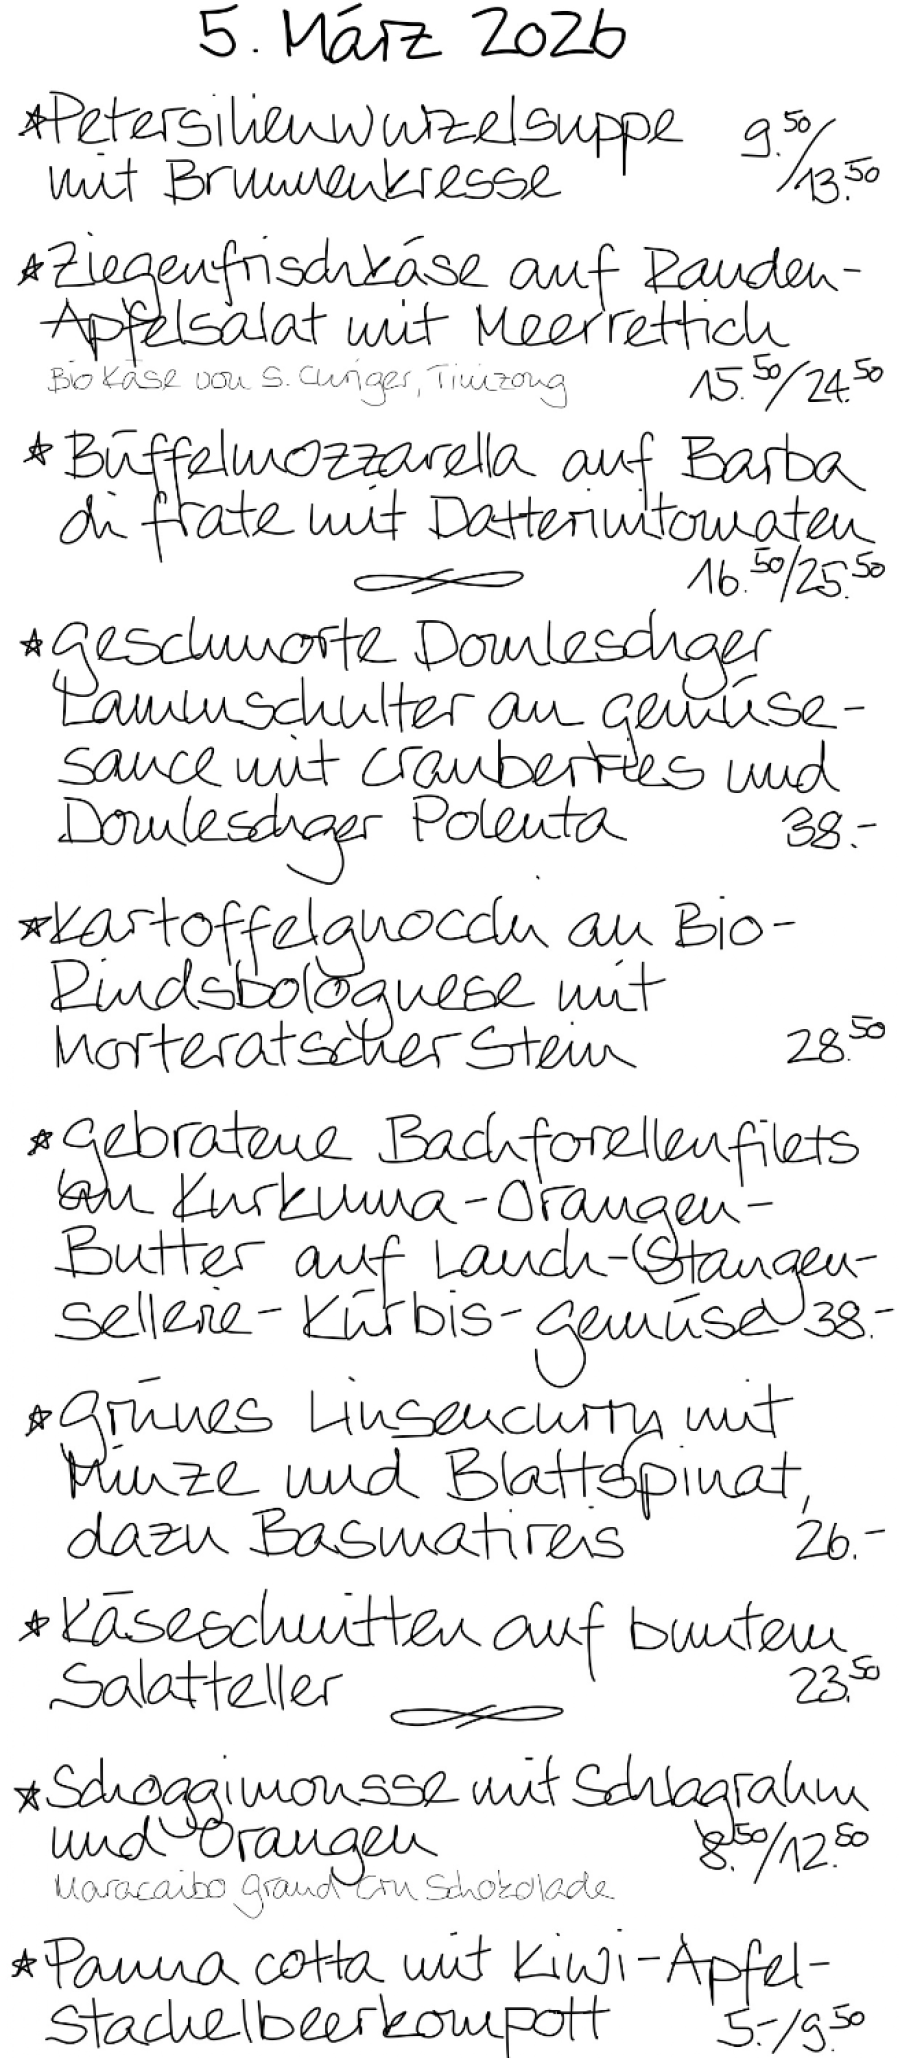 5. März 2026
*Petersilienwurzelsuppe 9.50/13.50
mit Brunnenkresse
*Ziegenfrischkäse auf Randen-
Apfelsalat mit Meerrettich
Bio Käse von S. Cunger, Tinizong 15.50/24.50
*Büffelmozzarella auf Barba
di frate mit Datterinitomaten
16.50/25.50
*geschmorte Domleschger
Lammschulter an gemüse-
sauce mit cranberries und
Domleschger Polenta 38.-
*Kartoffelgnocchi an Bio-
Rindsbolognese mit
Morteratscher Stein 28.50
*gebratene Bachforellenfilets
an Kurkuma-Orangen-
Butter auf Lauch-Stangen-
sellerie-Kürbis-gemüse 38.-
*grünes Linsencurry mit
Minze und Blattspinat,
dazu Basmatireis 26.-
*Käseschnitten auf buntem
Salatteller 23.50
*Schoggimousse mit Schlagrahm
und Orangen 8.50/12.50
Maracaibo grand Cru Schokolade
*Panna cotta mit Kiwi-Apfel-
Stachelbeerkompott 5.-/9.50